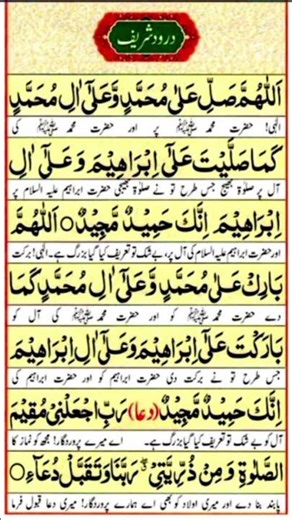 درود شریف
اَللّٰهُمَّ صَلِّ عَلٰى مُحَمَّدٍ وَّعَلٰٓى اٰلِ مُحَمَّدٍ
الٰہی! حضرت محمد ﷺ پر اور حضرت محمد ﷺ کی
كَمَا صَلَّيْتَ عَلٰٓى اِبْرَاهِيْمَ وَعَلٰٓى اٰلِ
آل پر صلوٰۃ بھیج جس طرح تو نے صلوٰۃ بھیجی حضرت ابراہیم علیہ السلام پر
اِبْرَاهِيْمَ اِنَّكَ حَمِيْدٌ مَّجِيْدٌ ○ اَللّٰهُمَّ
اور حضرت ابراہیم علیہ السلام کی آل پر، بے شک تو تعریف کیا گیا بزرگ ہے۔ الٰہی! برکت
بَارِكْ عَلٰى مُحَمَّدٍ وَّعَلٰٓى اٰلِ مُحَمَّدٍ كَمَا
دے حضرت محمد ﷺ کو اور حضرت محمد ﷺ کی آل کو
بَارَكْتَ عَلٰٓى اِبْرَاهِيْمَ وَعَلٰٓى اٰلِ اِبْرَاهِيْمَ
جس طرح تو نے برکت دی حضرت ابراہیم کو اور حضرت ابراہیم کی
اِنَّكَ حَمِيْدٌ مَّجِيْدٌ (دعا) رَبِّ اجْعَلْنِيْ مُقِيْمَ
آل کو بے شک تو تعریف کیا گیا بزرگ ہے۔ اے میرے پروردگار! مجھ کو نماز کا
الصَّلٰوةِ وَمِنْ ذُرِّيَّتِيْ رَبَّنَا وَتَقَبَّلْ دُعَآءِ ○
پابند بنا دے اور میری اولاد کو بھی اے ہمارے پروردگار! میری دعا قبول فرما